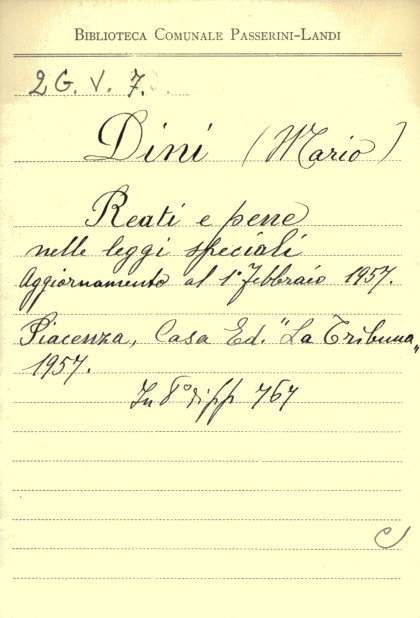 BIBLIOTECA COMUNALE PASSERINI-LANDI
2 G. V. 7.
Dini (Mario)
Reati e pene
nelle leggi speciali
Aggiornamento al 1° Febbraio 1957.
Piacenza, Casa Ed. "La Tribuna"
1957.
In 8° di pp 767